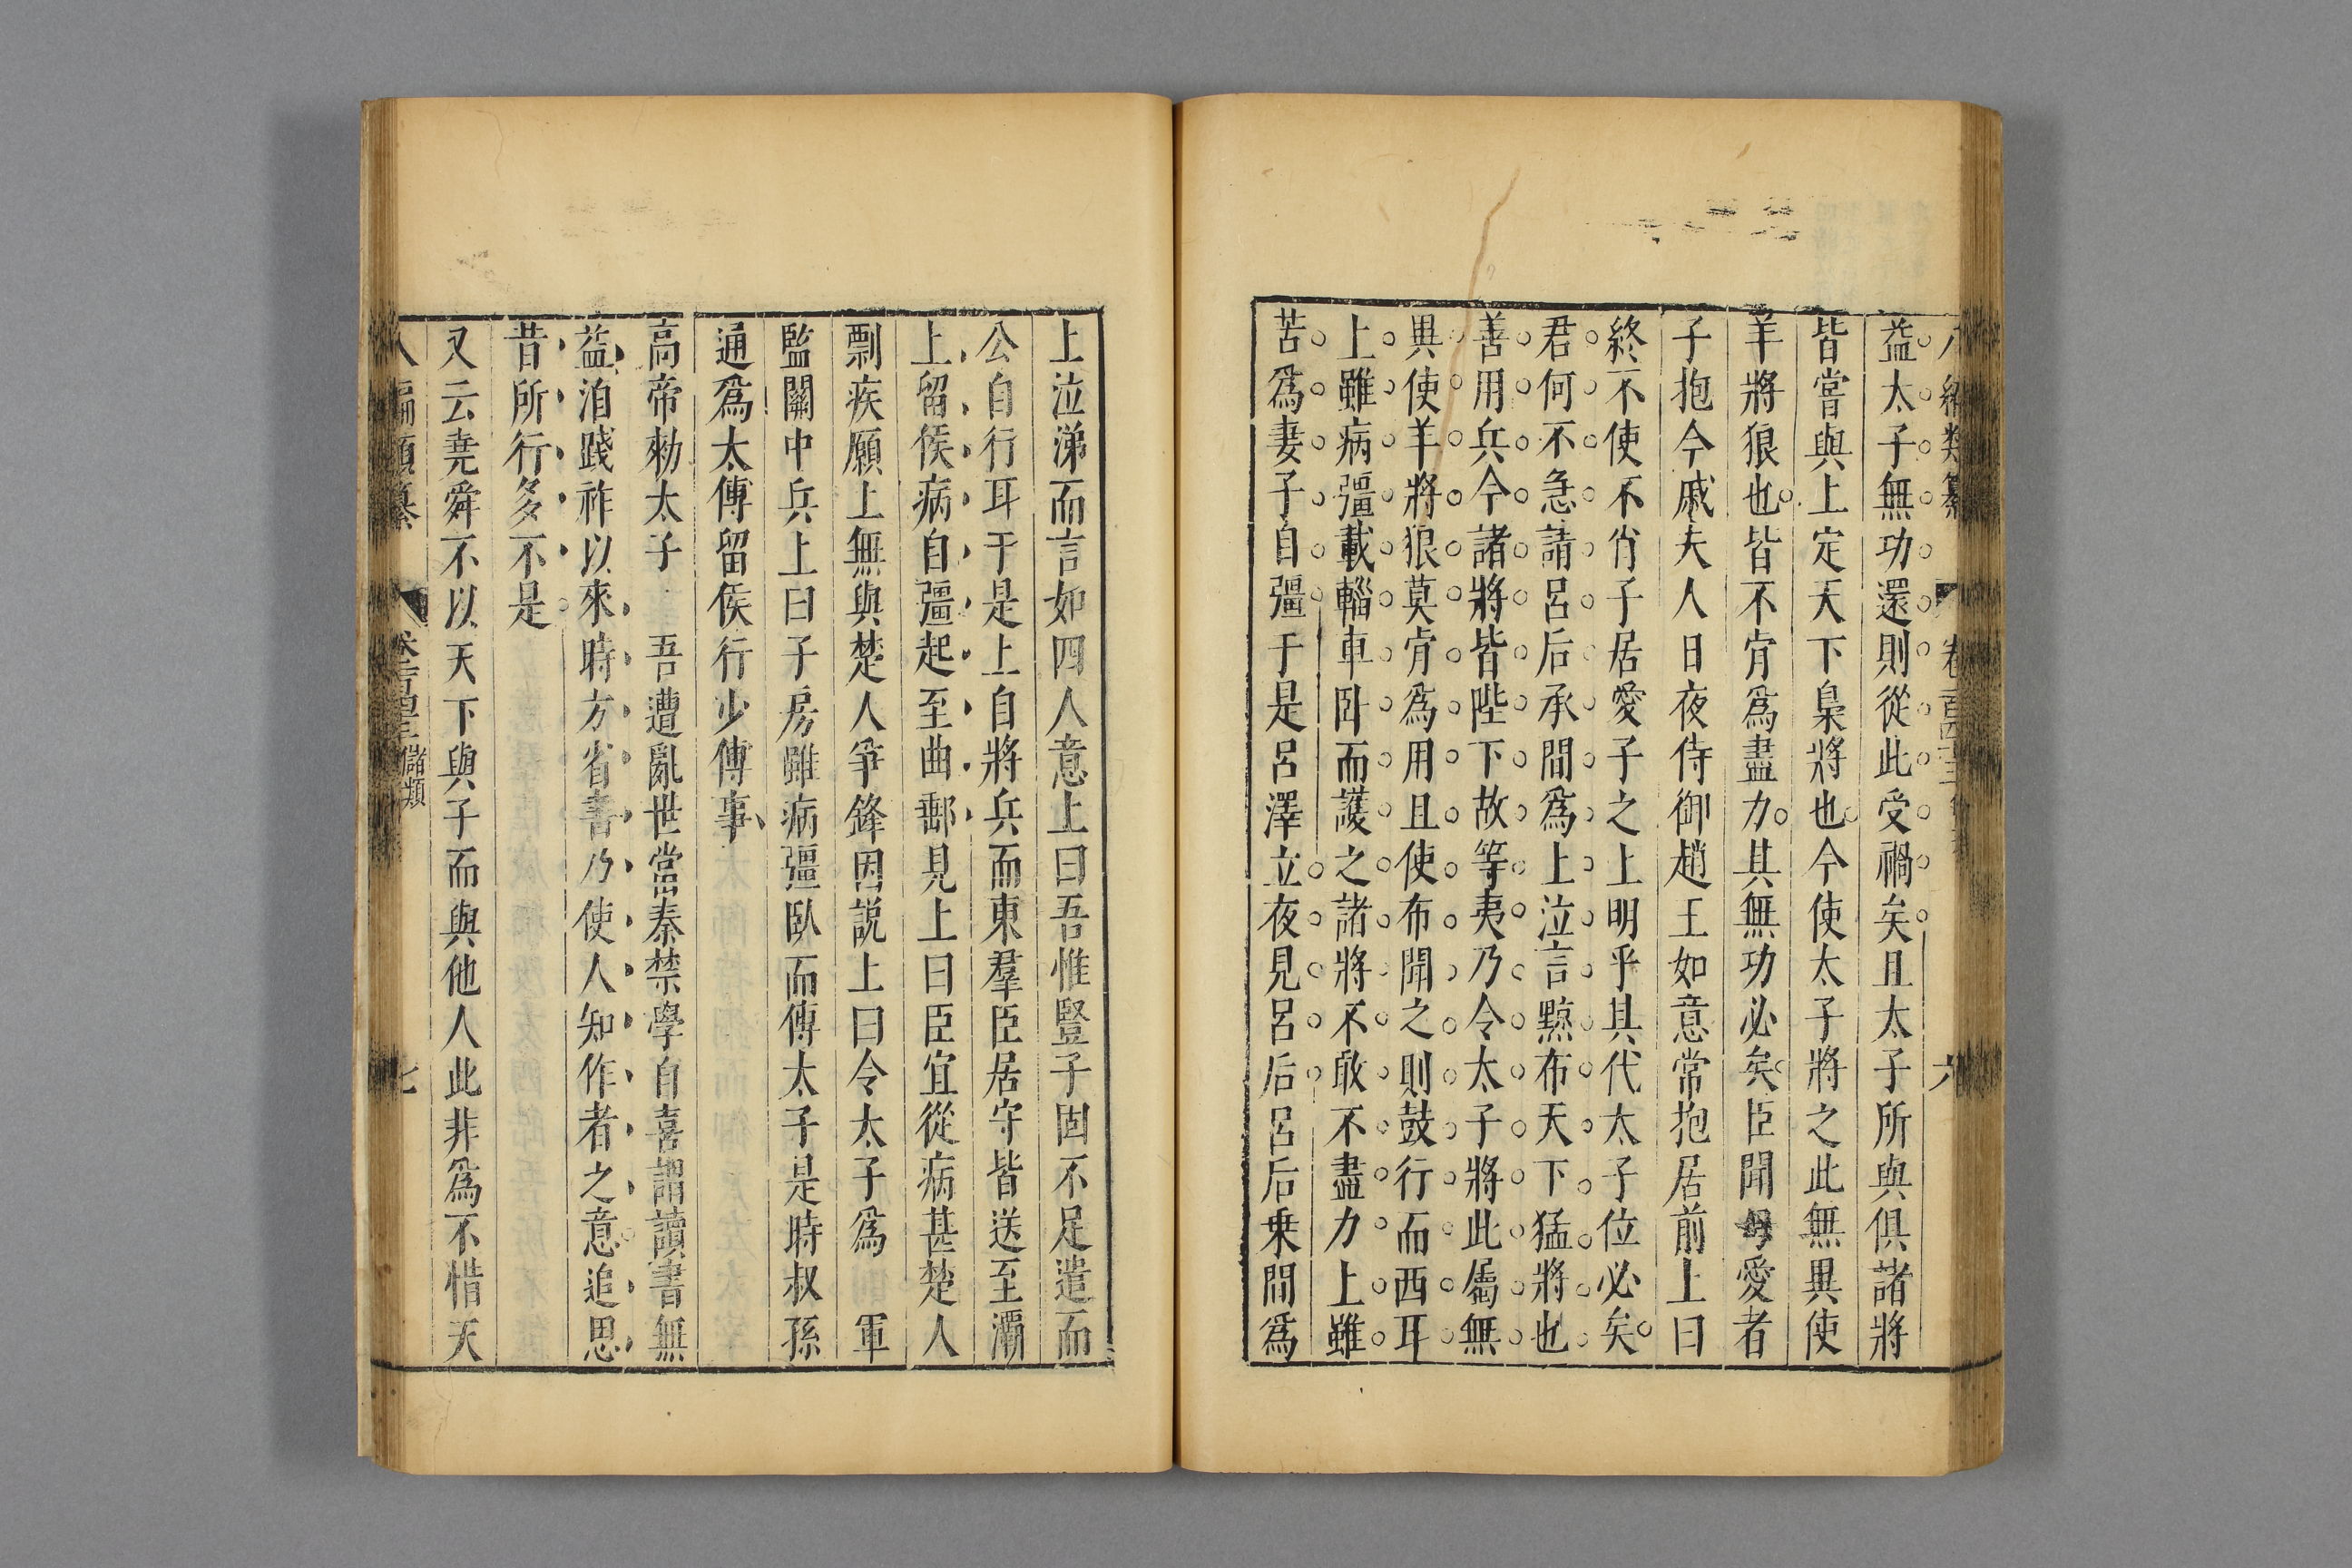 益太子無功還則從此受禍矣且太子所與俱諸將
皆嘗與上定天下梟將也今使太子將之此無異使
羊將狼也皆不肯爲盡力其無功必矣臣聞母愛者
子抱今戚夫人日夜侍御趙王如意常抱居前上曰
終不使不肖子居愛子之上明乎其代太子位必矣
君何不急請呂后承間爲上泣言黥布天下猛將也
善用兵今諸將皆陛下故等夷乃令太子將此屬無
異使羊將狼莫肯爲用且使布聞之則鼓行而西耳
上雖病彊載輜車卧而護之諸將不敢不盡力上雖
苦爲妻子自彊于是呂澤立夜見呂后呂后乗間爲
上泣涕而言如四人意上曰吾惟豎子固不足遣而
公自行耳于是上自將兵而東羣臣居守皆送至灞
上留侯病自彊起至曲郵見上曰臣宜從病甚楚人
剽疾願上無與楚人爭鋒因説上曰令太子爲 軍
監關中兵上曰子房雖病彊臥而傳太子是時叔孫
通爲太傅留侯行少傅事
高帝勑太子 吾遭亂世當秦禁學自喜謂讀書無
益洎踐祚以來時方省書乃使人知作者之意追思
昔所行多不是
又云堯舜不以天下與子而與他人此非爲不惜天
儲類
七